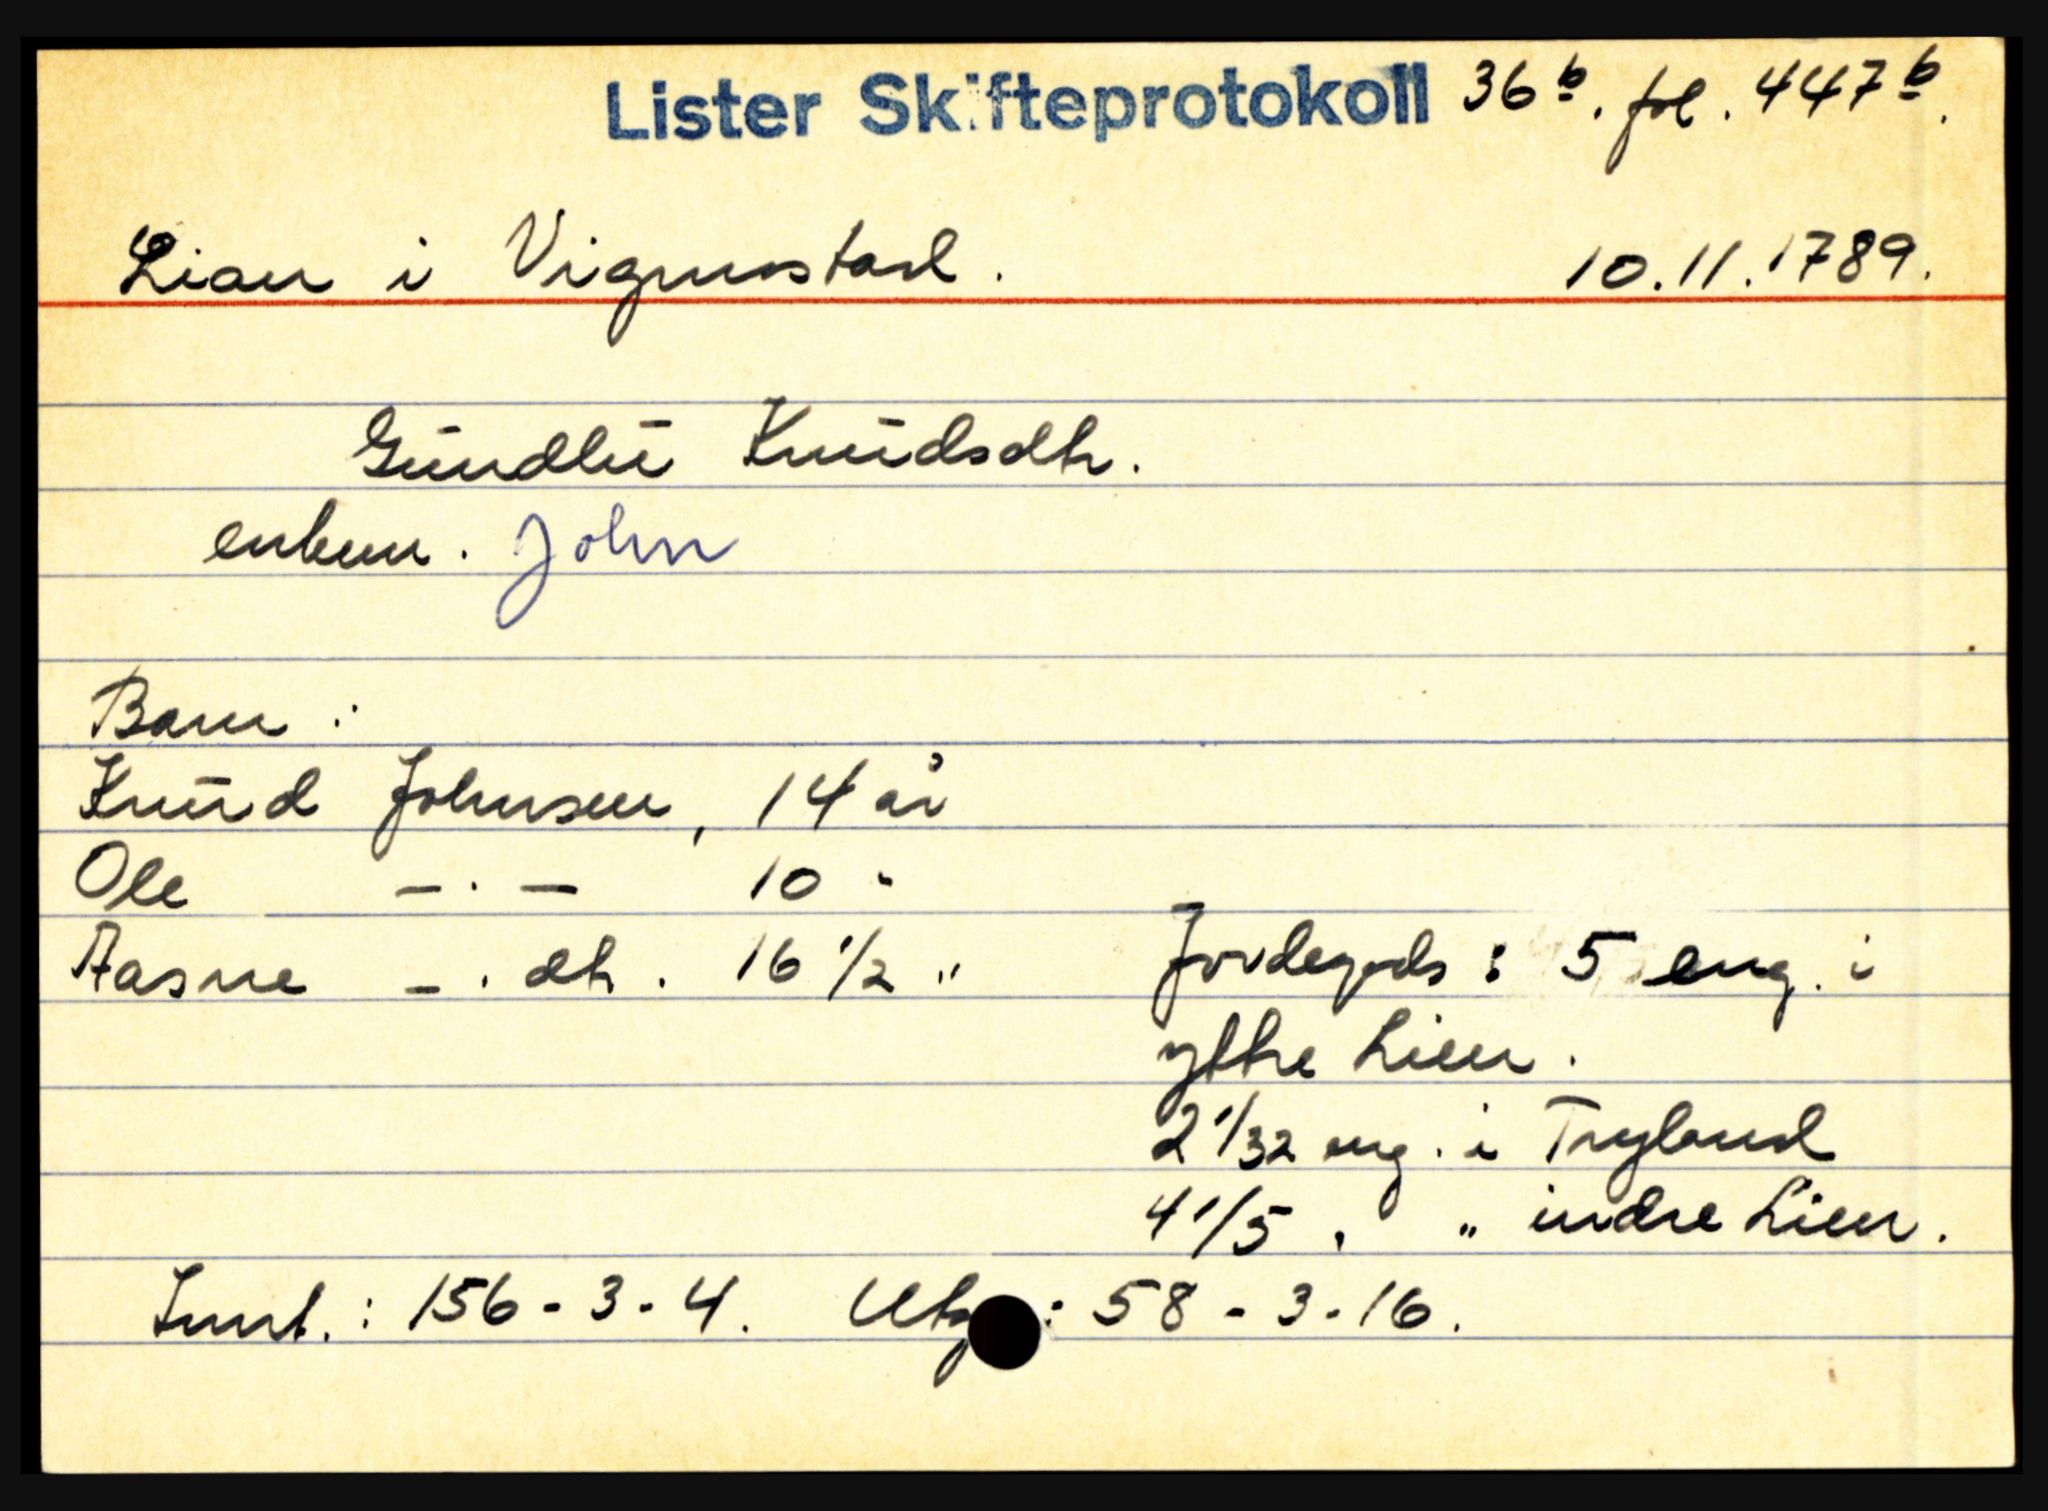 Lister Skifteprotokoll 36b. fol. 447b.
Lian i Vigmostad. 10.11.1789.
Gundlu Knudsdtr.
enkem. John
Barn:
Knud Johnsen, 14 år
Ole — . — 10 "
Aasne — . dtr. 16 1/2 "
Jordegods: 5 eng. i
ytre Lien.
2 1/32 eng. i Tryland
4 1/5 " " indre Lien.
Innt.: 156-3-4. Utg.: 58-3-16.